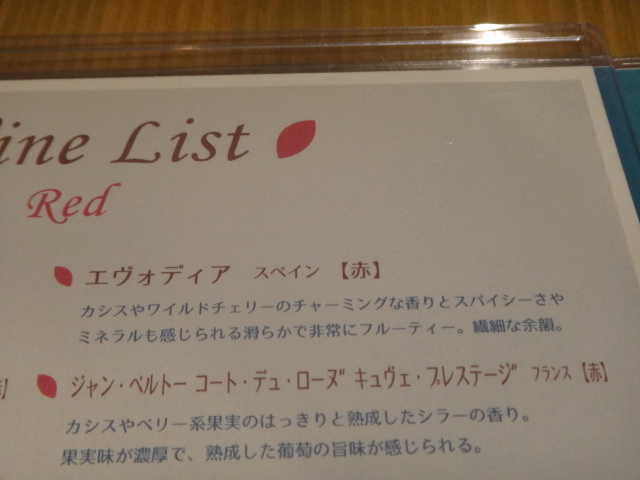 ine List
Red
エヴォディア スペイン 【赤】
カシスやワイルドチェリーのチャーミングな香りとスパイシーさや
ミネラルも感じられる滑らかで非常にフルーティー。繊細な余韻。
ジャン・ベルトー コート・デュ・ローヌ キュヴェ・プレステージ フランス 【赤】
カシスやベリー系果実のはっきりと熟成したシラーの香り。
果実味が濃厚で、熟成した葡萄の旨味が感じられる。